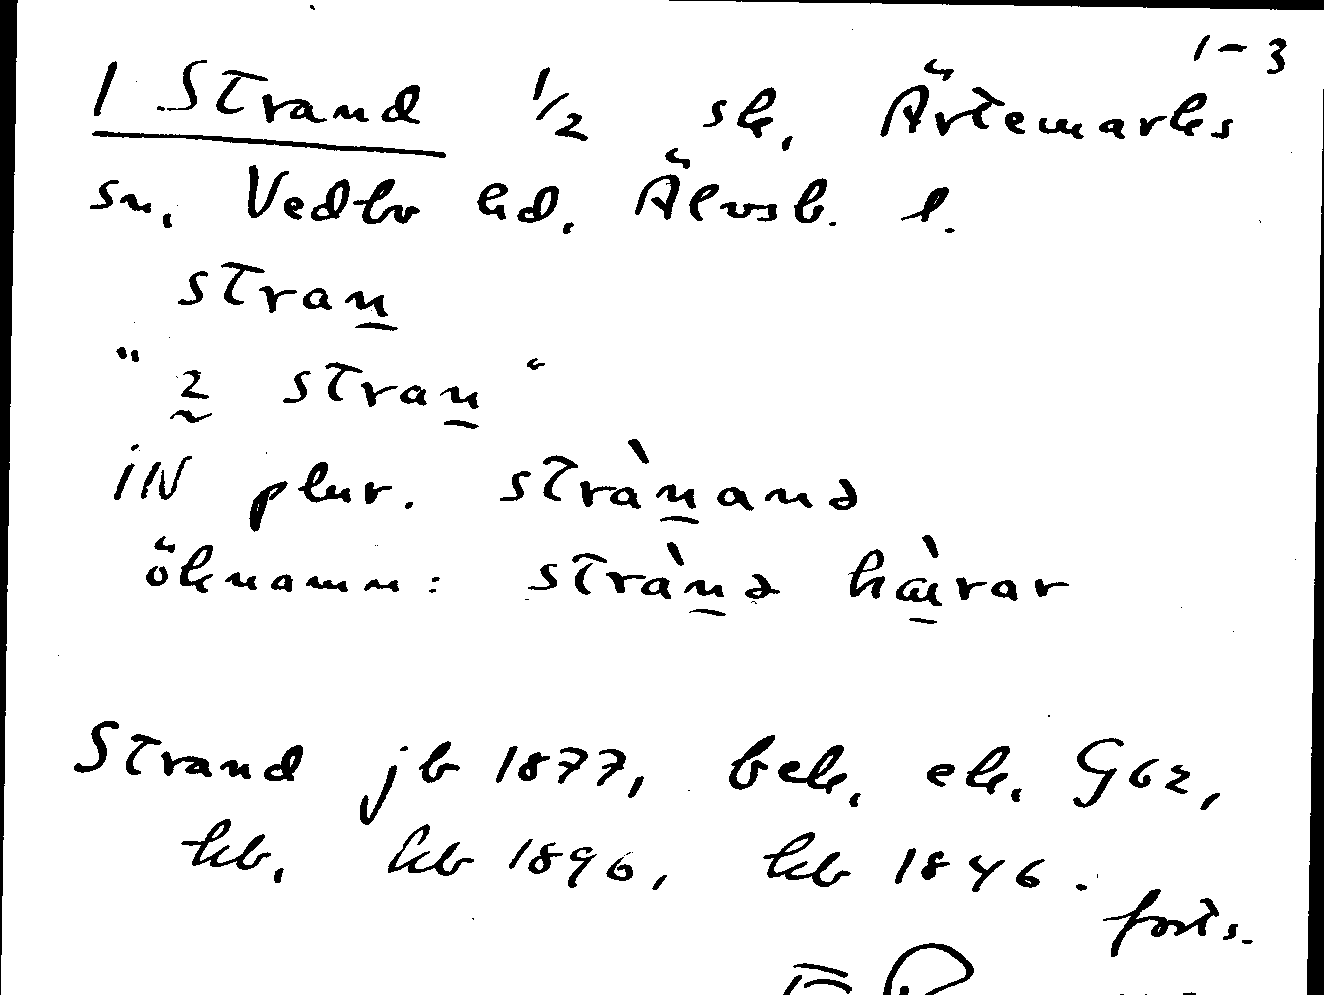 1-3
1 Strand 1/2 sk. Ärtemarks
sn. Vedbo hd. Älvsb. l.
stran̲
" 2̰ stran̲ "
iN plur. stràn̲anə
öknamn: stràn̲ə hæ̲̀rar
Strand jb 1877, bek. ek. G62,
kb. hb 1896, kb 1846.
forts.